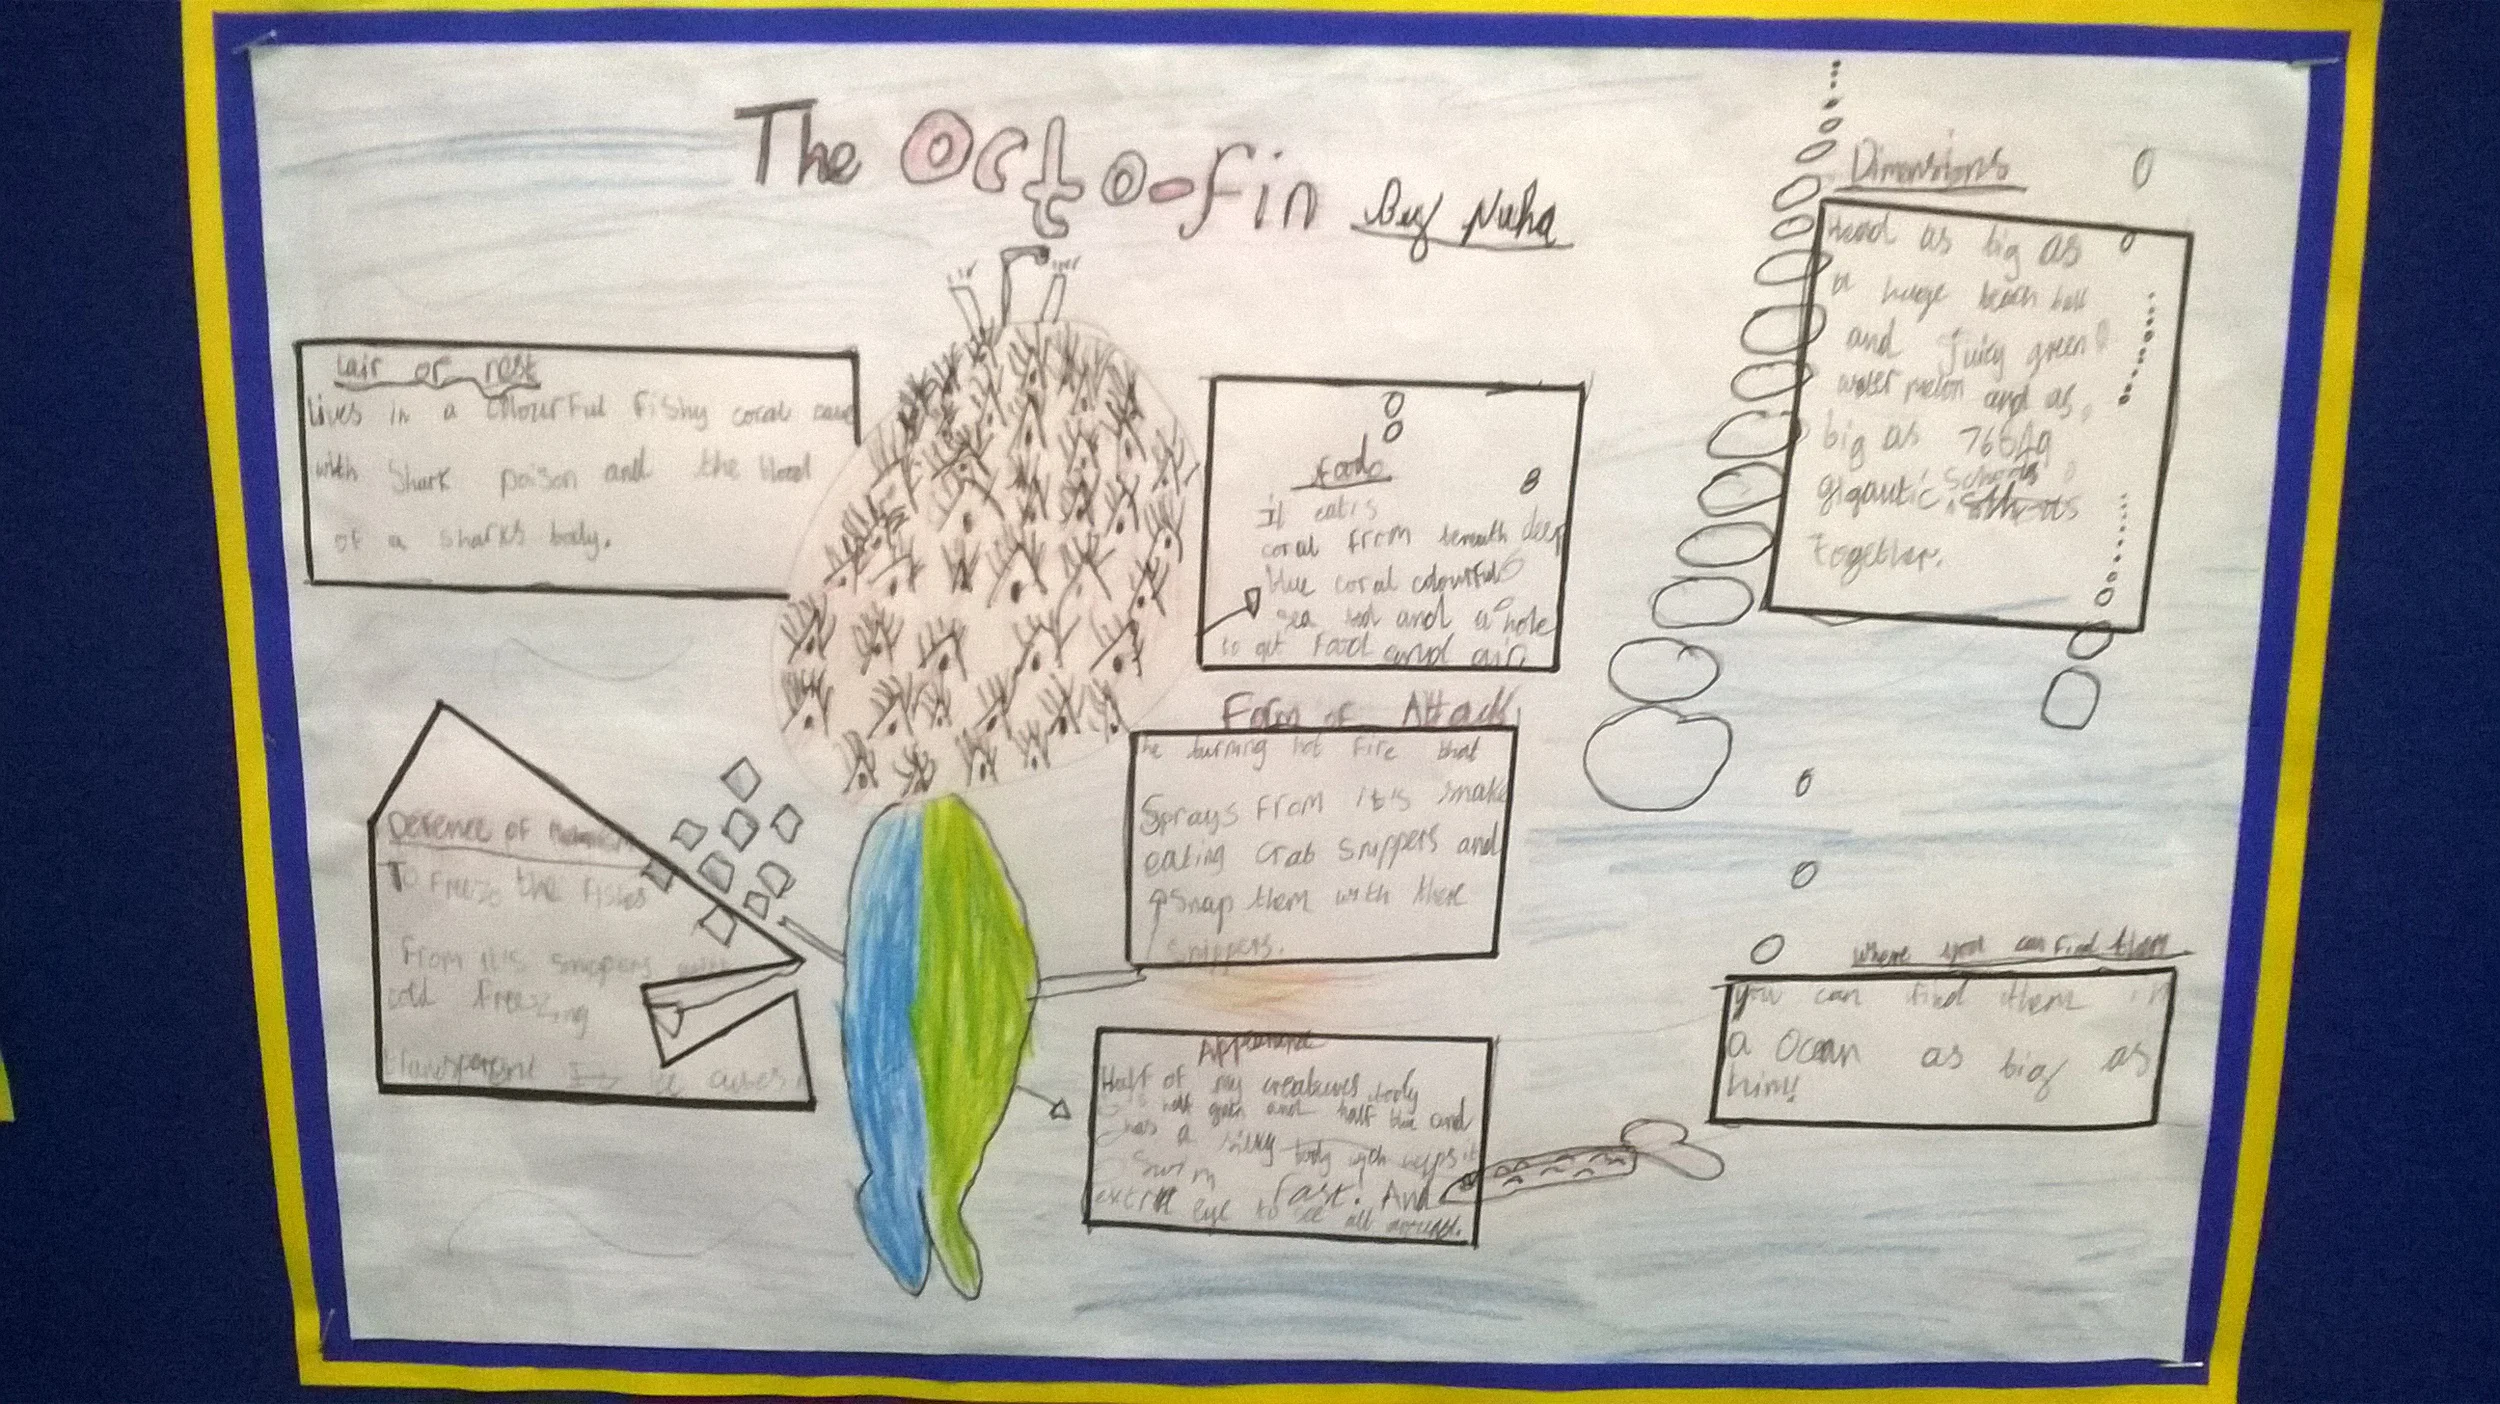 The Octo-fin By Nuha
Lair or nest
Lives in a colourful fishy coral cave
with shark poison and the blood
of a sharks body.
Food
it eats
coral from beneath deep
blue coral colourful
sea and a hole
to get food and air
Dimensions
Head as big as
a huge beach ball
and Juicy green
water melon and as
big as
gigantic schools
Together.
Form of Attack
The burning hot fire that
Sprays from it's snake
eating crab snippers and
snap them with there
snippers.
Defence of
To freeze the fishes
from it's snippers with
cold freezing
transparent ice cubes
Appearance
Half of my creatures body
is half green and half blue and
has a silky body wich helps it
swim fast! And
extra eye to see all around.
where you can find them
you can find them in
a Ocean as big as
him!